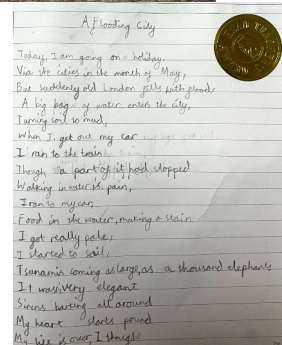 A Flooding City
Today, I am going on a holiday.
Via the cities in the month of May,
But suddenly old London fills with flood,
A big bag of water enters the city,
Turning soil to mud,
When I get out my car
I ran to the train
Though a part of it had stopped
Walking in water is pain,
I ran to my car,
Food in the water, making a stain
I got really pale,
I started to sail,
Tsunamis coming as large, as a thousand elephants
It was very elegant
Sirens barking all around
My heart starts pound
My life is over, I thought